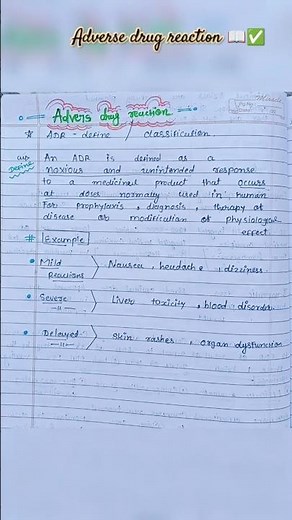 Adverse drug reaction 📖✅
Advers drug reaction
ADR - define / classification
Define
An ADR is defined as a
noxious and unintended response
to a medicinal product that occurs
at doses normally used in human
For prophylaxis, diagnosis, therapy of
disease or modification of physiological
effect
# Example
Mild
Reactions
Nausea, headache, dizziness
Severe
—11—
Liver toxicity, blood disorder
Delayed
—11—
Skin rashes, organ dysfunction